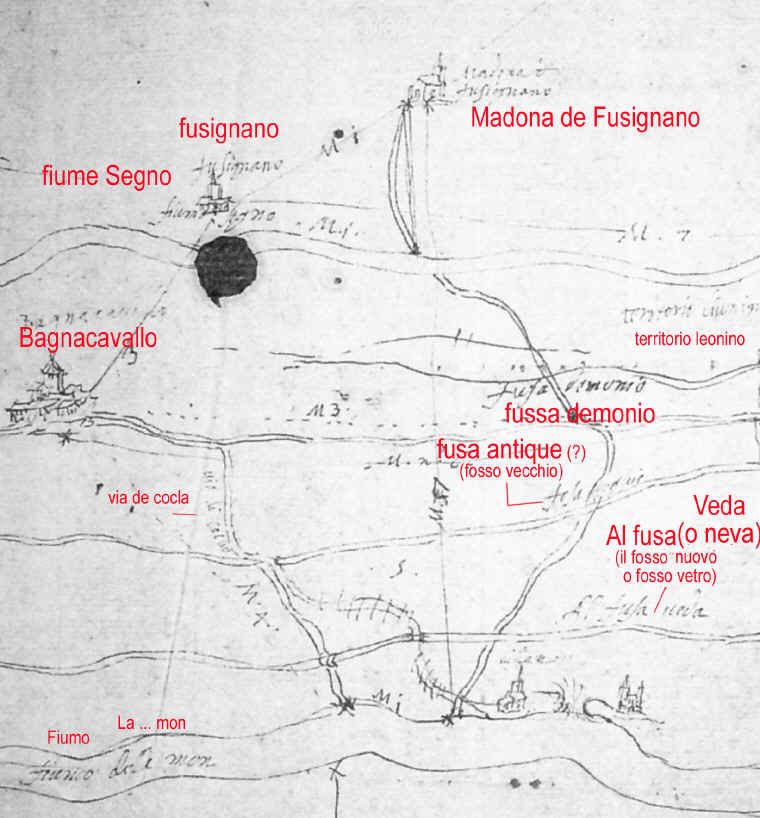 Madona d
fusignano
Madona de Fusignano
fusignano
M i
fusignano
fiume Segno
fiume Segno
M. 1.
M. 7
Bagnacavallo
territorio
territorio leonino
fusa demonio
fussa demonio
M 3
fusa antique (?)
(fosso vecchio)
via de cocla
via de cocla
Veda
Al fusa (o neva)
(il fosso nuovo
o fosso vetro)
S.
M. 4.
Al fusa veda
M i
La ... mon
Fiumo
fiumo dela mon